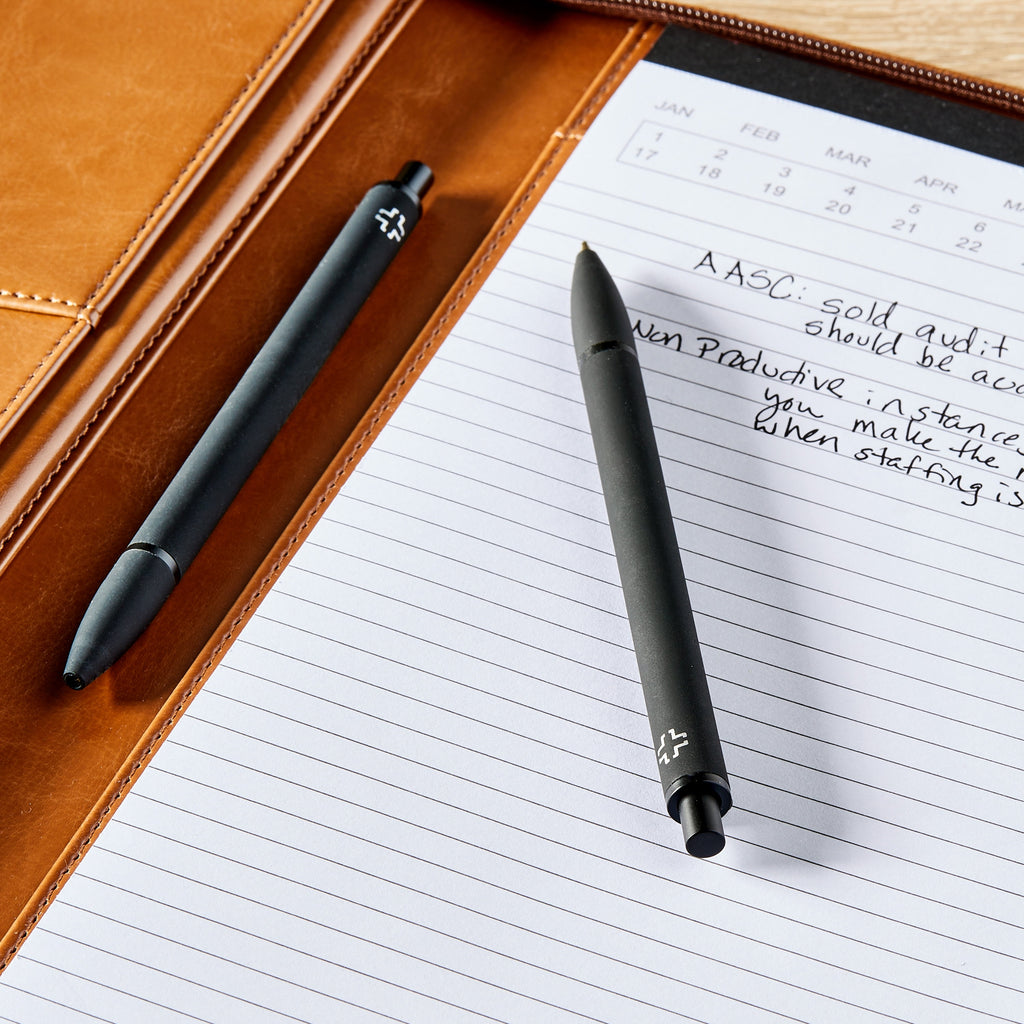 JAN FEB MAR APR
1 2 3 4 5 6
17 18 19 20 21 22
A ASC: sold audit
should be
Non Productive instances
you make the
when staffing is